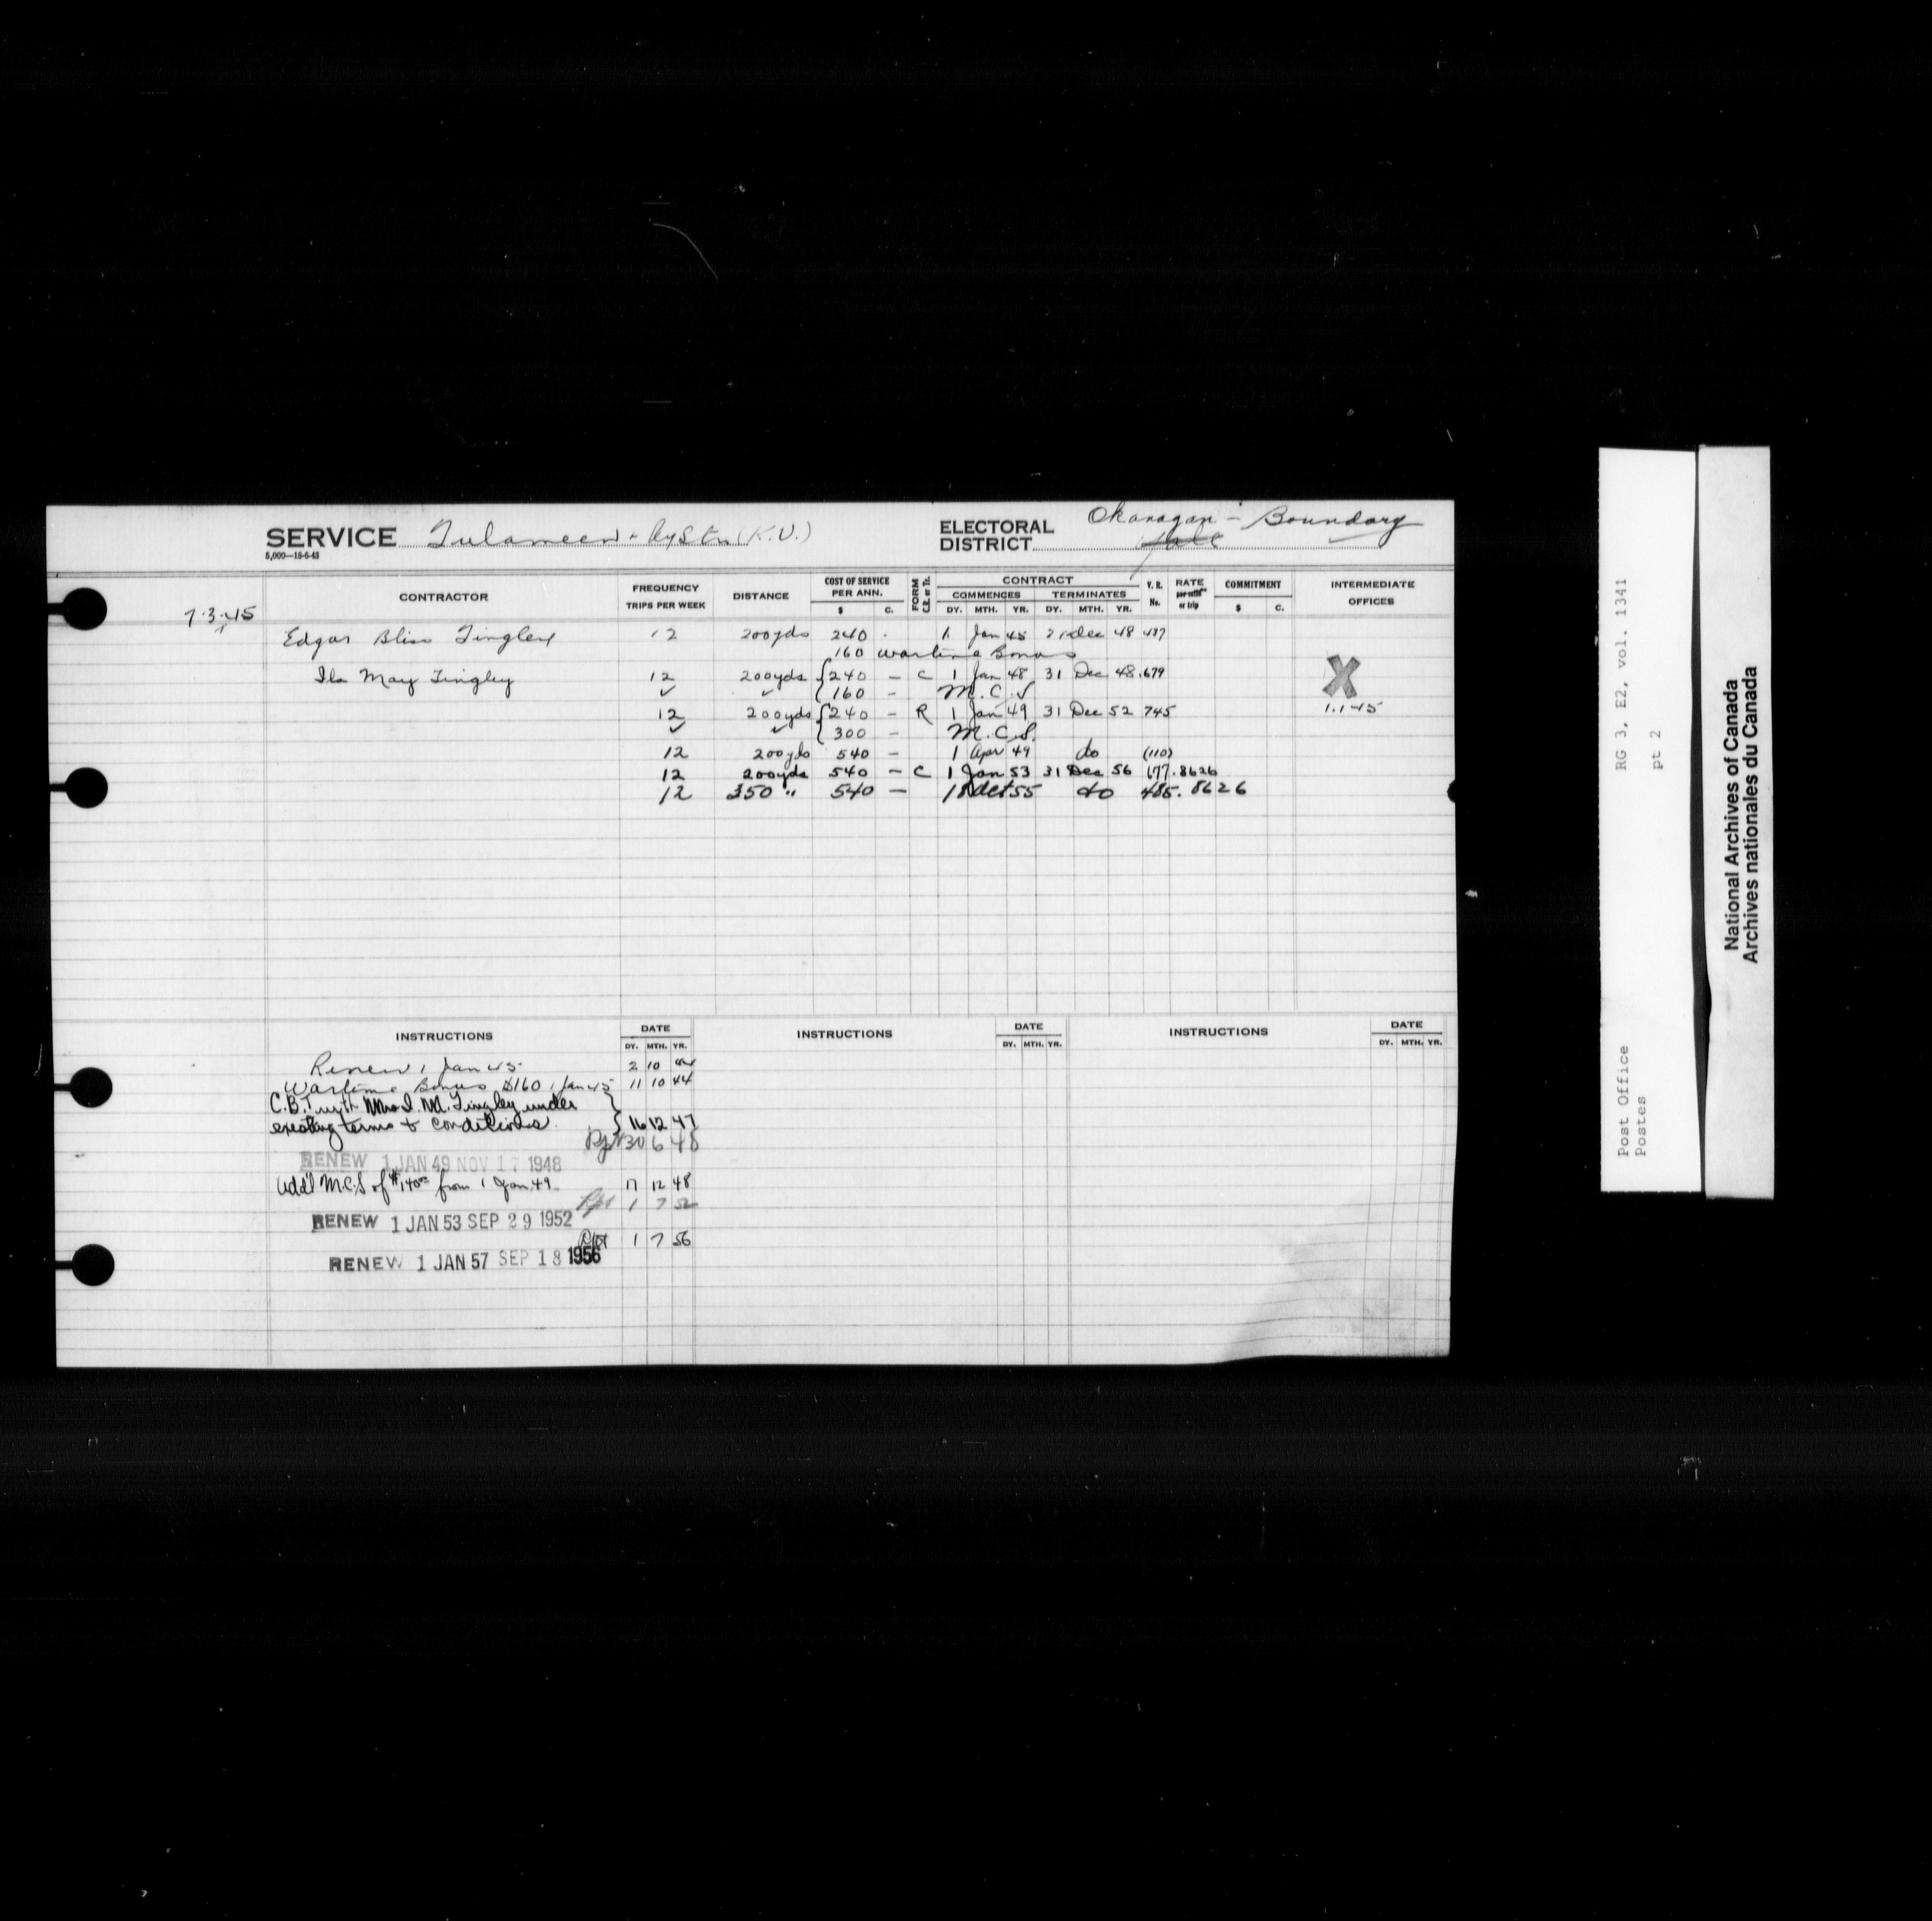 SERVICE Tulameen & Ry Stn (K.V.)
5,000—15-6-43
ELECTORAL DISTRICT Okanagan - Boundary
Yale
CONTRACTOR
FREQUENCY TRIPS PER WEEK
DISTANCE
COST OF SERVICE PER ANN. $ C.
FORM C.B. or Tr.
CONTRACT
COMMENCES DY. MTH. YR.
TERMINATES DY. MTH. YR.
V. R. No.
RATE per mile or trip
COMMITMENT $ C.
INTERMEDIATE OFFICES
7.3.45
Edgar Bliss Tingley 12 200yds 240 . 1 Jan 45 31 Dec 48 437
160 wartime Bonus
Ila May Tingley 12 200yds 240 — C 1 Jan 48 31 Dec 48 .679
✓ ✓ 160 — M.C.S
X
12 200yds 240 — R 1 Jan 49 31 Dec 52 745
1.1.45
✓ ✓ 300 — M.C.S.
12 200yds 540 — 1 Apr 49 do (110)
12 200yds 540 — C 1 Jan 53 31 Dec 56 177. 8626
12 350 " 540 — 18 Oct 55 do 485. 8626
INSTRUCTIONS DATE DY. MTH. YR.
INSTRUCTIONS DATE DY. MTH. YR.
INSTRUCTIONS DATE DY. MTH. YR.
Renew 1 Jan 45 2 10 44
Wartime Bonus $160 1 Jan 45 11 10 44
C.B.T with Mrs I. M. Tingley under
existing terms & conditions. 16 12 47
30 6 48
RENEW 1 JAN 49 NOV 17 1948
Add'l M.C.S of $140.00 from 1 Jan 49 17 12 48
Rpt 1 7 52
RENEW 1 JAN 53 SEP 29 1952
Rpt 1 7 56
RENEW 1 JAN 57 SEP 18 1956
RG 3, E2, vol. 1341
pt 2
Post Office
Postes
National Archives of Canada
Archives nationales du Canada